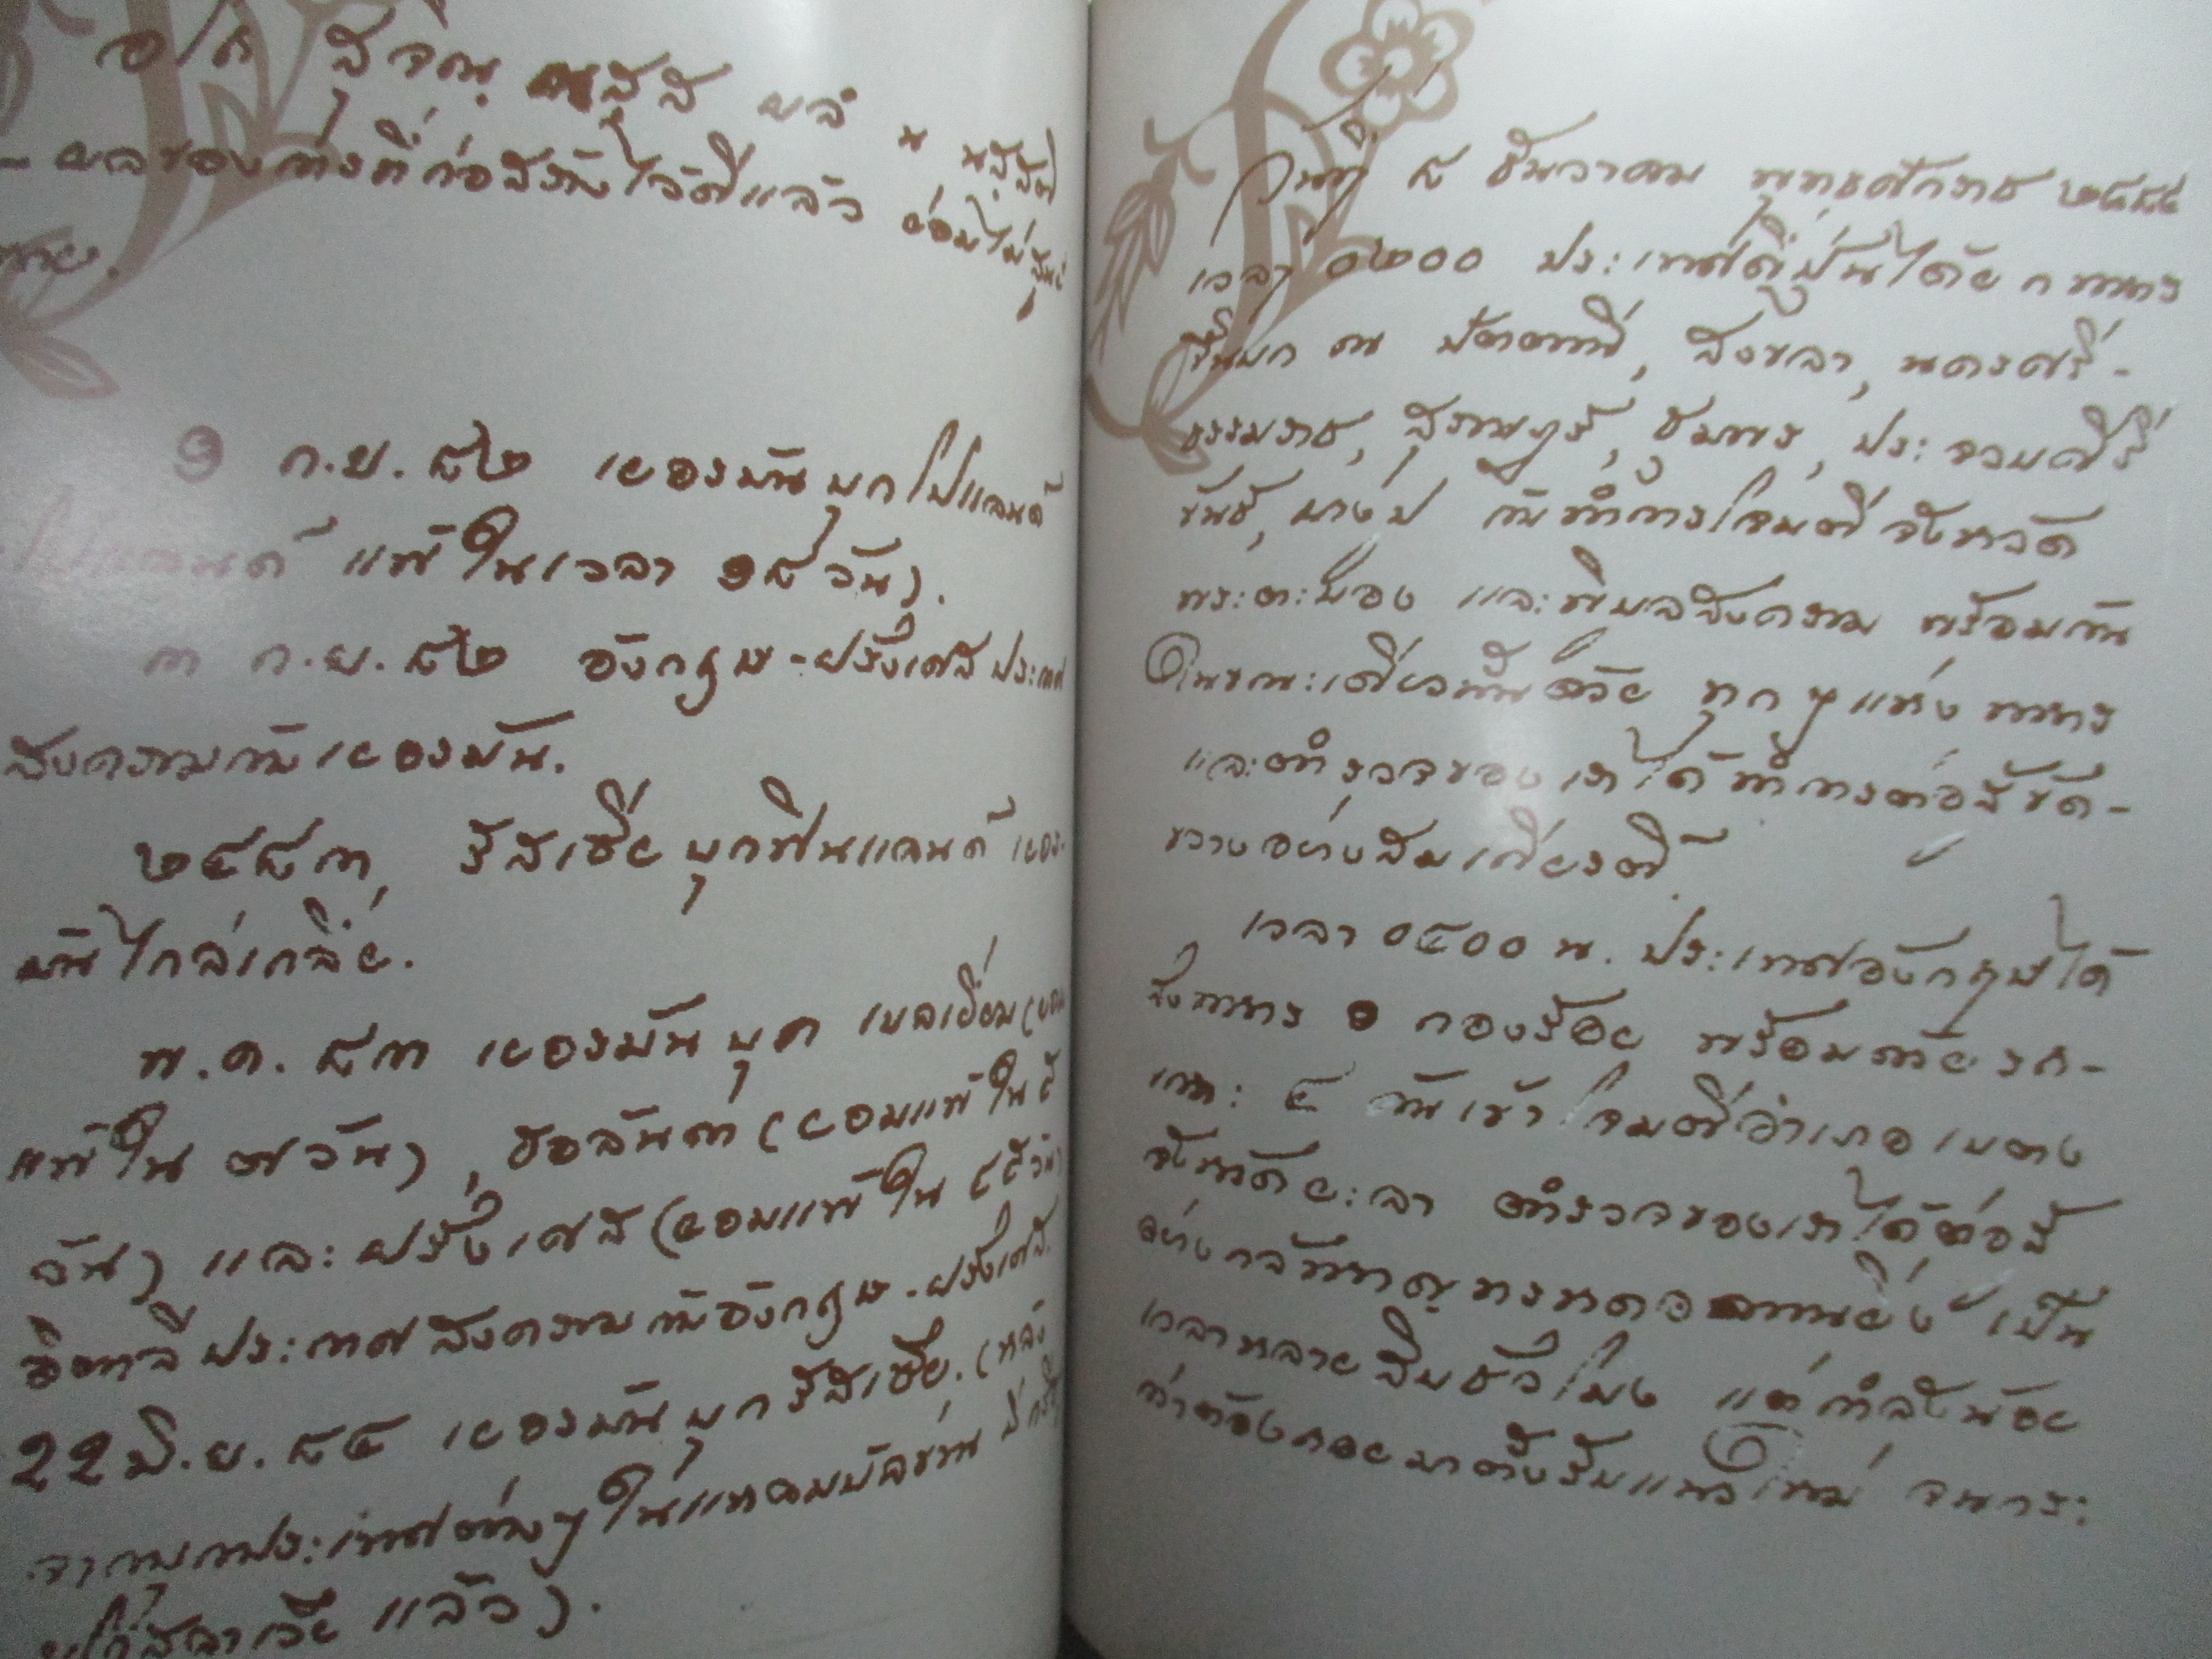 ผลํ น นสฺสติ
- ผลของการที่ก่อสร้างไว้ดีแล้ว ย่อมไม่สูญ
หาย.
๑ ก.ย. ๘๒ เยอรมันบุกโปแลนด์
โปแลนด์ แพ้ในเวลา ๑๘ วัน).
๓ ก.ย. ๘๒ อังกฤษ-ฝรั่งเศสประกาศ
สงครามกับเยอรมัน.
๒๔๘๓, รัสเซียบุกฟินแลนด์ เยอร-
มันไกล่เกลี่ย.
พ.ค. ๘๓ เยอรมันบุก เบลเยี่ยม (ยอม
แพ้ใน ๗ วัน), ฮอลันดา (ยอมแพ้ใน ๕
วัน) และฝรั่งเศส (ยอมแพ้ใน ๔๕ วัน)
อิตาลีประกาศสงครามกับอังกฤษ-ฝรั่งเศส.
22 มิ.ย. ๘๔ เยอรมันบุกรัสเซีย. (หลัง
จากบุกประเทศต่างๆในแหลมบัลข่าน มีกรีซ
ยูโกสลาเวีย แล้ว).
วันที่ ๘ ธันวาคม พุทธศักราช ๒๔๘๔
เวลา ๐๒๐๐ ประเทศญี่ปุ่นได้ยกทหาร
ขึ้นบก ณ ปัตตานี, สงขลา, นครศรี-
ธรรมราช, สุราษฎร์, ชุมพร, ประจวบคีรี
ขันธ์, บางปู กับทำการโจมตีจังหวัด
พระตะบอง และพิบูลสงคราม พร้อมกัน
ในขณะเดียวกันนั้นด้วย ทุกๆแห่ง ทหาร
และตำรวจของเราได้ทำการต่อสู้ขัด-
ขวางอย่างสมเกียรติ.
เวลา ๐๔๐๐ น. ประเทศอังกฤษได้
ส่งทหาร ๑ กองร้อย พร้อมด้วย รถ-
เกราะ ๔ คันเข้าโจมตีอำเภอเบตง
จังหวัดยะลา ตำรวจของเราได้ต่อสู้
อย่างกล้าหาญทรหดอดทนยิ่ง เป็น
เวลาหลายสิบชั่วโมง แต่กำลังน้อย
กว่าต้องถอยมาตั้งรับแนวใหม่ จนกระ